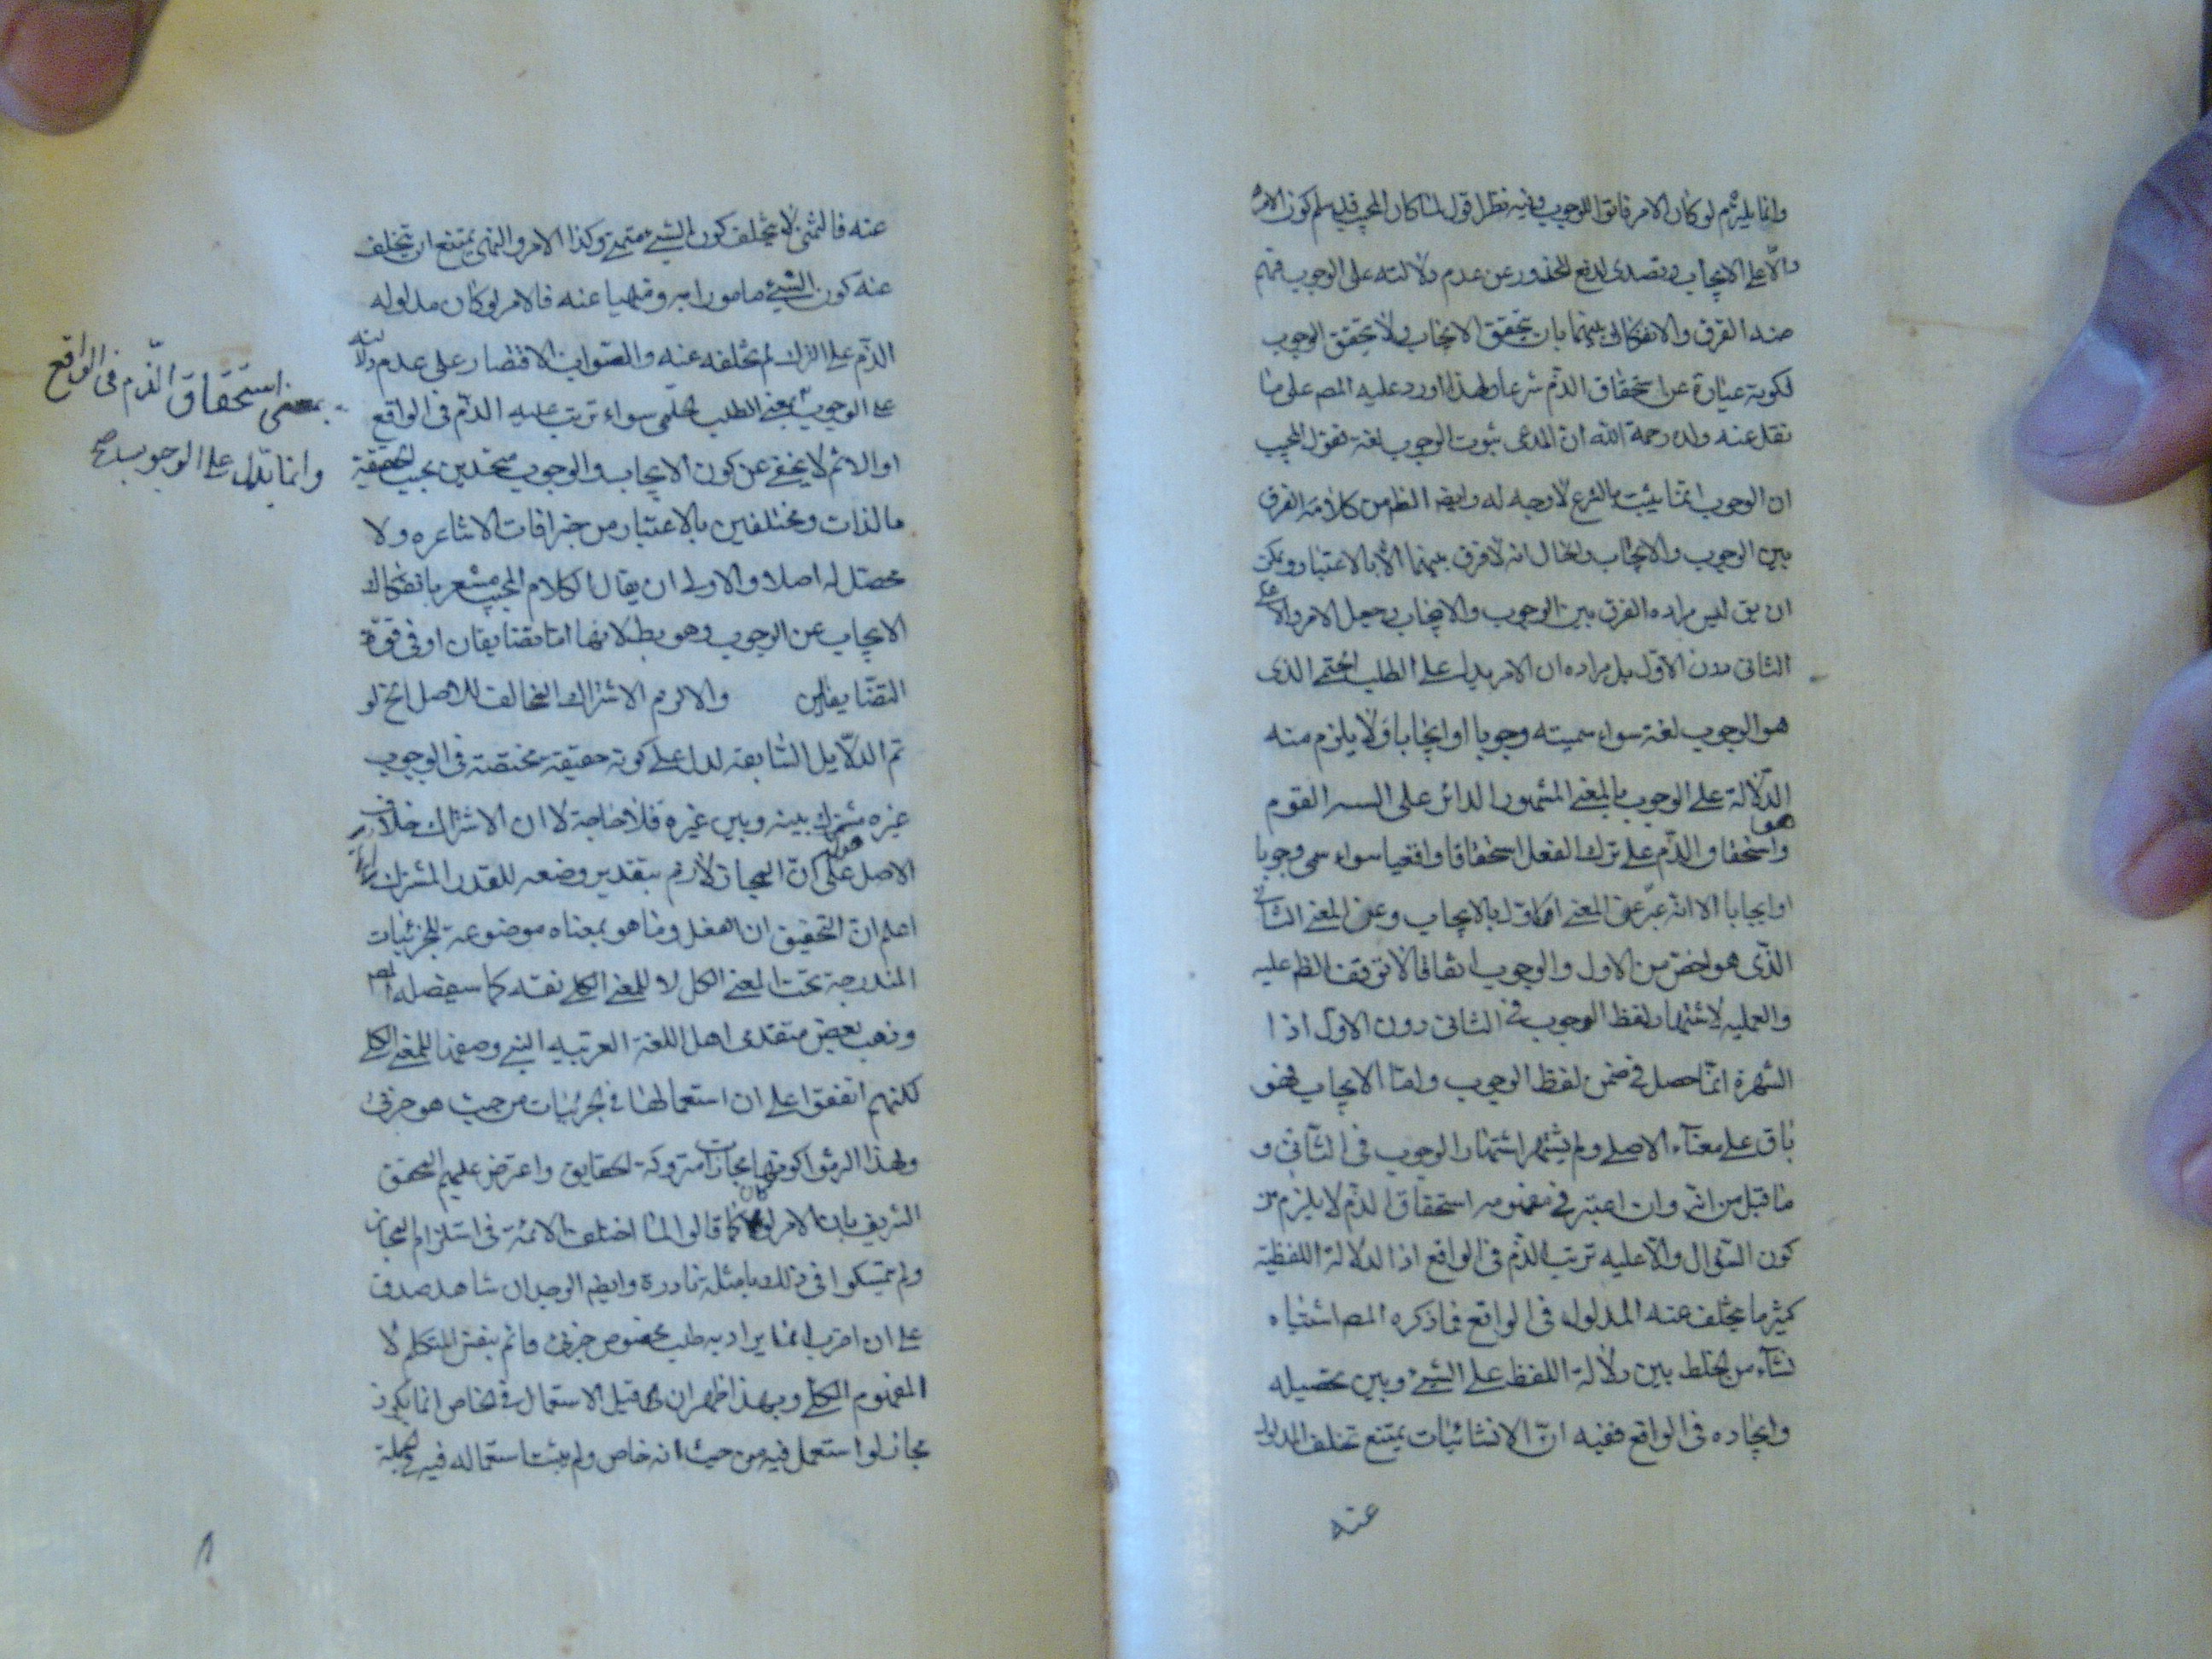 وانما يلزم لو كان الامر فانه الوجوب وفيه نظر اقول لما كان المجيب قد سلم كون الامر
دالا على الايجاب وتصدى لدفع المحذور عن عدم دلالته على الوجوب فهم
منه الفرق والانفكاك بينهما بان يتحقق الايجاب ولا يتحقق الوجوب
لكونه عبارة عن استحقاق الذم شرعا ولهذا اورد عليه المصـ على ما
نقل عنه ولده رحمة الله ان المدعى ثبوت الوجوب لغة فقول المجيب
ان الوجوب انما يثبت بالشرع لا وجه له وايضـ الظـ من كلامه الفرق
بين الوجوب والايجاب والحال انه لا فرق بينهما الا بالاعتبار ويمكن
ان يق ليس مراده الفرق بين الوجوب والايجاب وجعل الامر دالا على
الثانى دون الاول بل مراده ان الامر يدل على الطلب الحتمى الذى
هو الوجوب لغة سواء سميته وجوبا او ايجابا ولا يلزم منه
الدلالة على الوجوب بالمعنى المشهور الدائر على السنة القوم
وهو استحقاق الذم على ترك الفعل استحقاقا واقعيا سواء سمى وجوبا
او ايجابا الا انه عبر عن المعنى الاول بالايجاب وعن المعنى الثانى
الذى هو اخص من الاول والوجوب اتفاقا لا توقف الظم عليه
والعمليه لاشتهار لفظ الوجوب فى الثانى دون الاول اذا
الشهرة انما حصل فى ضمن لفظ الوجوب واما الايجاب فهو
باق على معناه الاصلى ولم يشتهر اشتهار الوجوب فى الثانى و
ما قيل من انه وان اعتبر فى مفهومه استحقاق الذم لا يلزم من
كون السؤال دالا عليه ترتب الذم فى الواقع اذ الدلالة اللفظية
كثير ما يتخلف عنه المدلول فى الواقع فما ذكره المصـ اشتباه
نشأ من الخلط بين دلالة اللفظ على الشئ وبين تحصيله
وايجاده فى الواقع ففيه ان الانشائيات يمتنع تخلف المدلول
عنه
عنه فالتمنى لا يتخلف كون الشئ متمنى وكذا الامر والنهى يمتنع ان يتخلف
عنه كون الشئ مامورا به ومنهيا عنه فالامر لو كان مدلوله
الذم على الترك لم يتخلفه عنه والصواب الاقتصار على عدم دلالته
على الوجوب بمعنى الطلب الحتمى سواء ترتب عليه الذم فى الواقع
بمعنى استحقاق الذم فى الواقع
وانما يدل على الوجوب صح
او لا ثم لا يخفى عن كون الايجاب والوجوب متحدين بحسب الحقيقة
بالذات ومختلفين بالاعتبار من خرافات الاشاعره ولا
محصل له اصلا والاولى ان يقال كلام المجيب مشعر بانفكاك
الايجاب عن الوجوب وهو بطـ لانهما اما متضايفان او فى قوة
التضايفين والا لزم الاشتراك المخالف للاصل الخ لو
تم الدلايل السابقه لدل على كونه حقيقة مختصة فى الوجوب
غيره مشترك بينه وبين غيره فلا حاجة لا ان الاشتراك خلاف
الاصل على ان المجاز لازم بتقدير وضعه للقدر المشترك
اعلم ان التحقيق ان افعل وما هو بمعناه موضوعة للجزئيات
المندرجة تحت المعنى الكلى لا للمعنى الكلى نفسه كما سيفصله المصـ
وذهب بعض متقدمى اهل اللغة العربيه الى وضعها للمعنى الكلى
لكنهم اتفقوا على ان استعمالها فى الجزئيات من حيث هو جزئى
ولهذا الزموا كونها مجازات متروكة الحقايق واعترض عليهم المحقق
الشريف بان الامر لو كان كما قالوا لما اختلف الائمة فى استلزام المجاز
ولم يتمسكوا فى ذلك بامثلة نادرة وايضـ الوجدان شاهد صدق
على ان اضرب انما يراد به طلب مخصوص جزئى قائم بنفس المتكلم لا
المفهوم الكلى وبهذا ظهر ان ما قيل الاستعمال فى الخاص انما يكون
مجاز لو استعمل فيه من حيث انه خاص ولم يثبت استعماله فيه الجملة